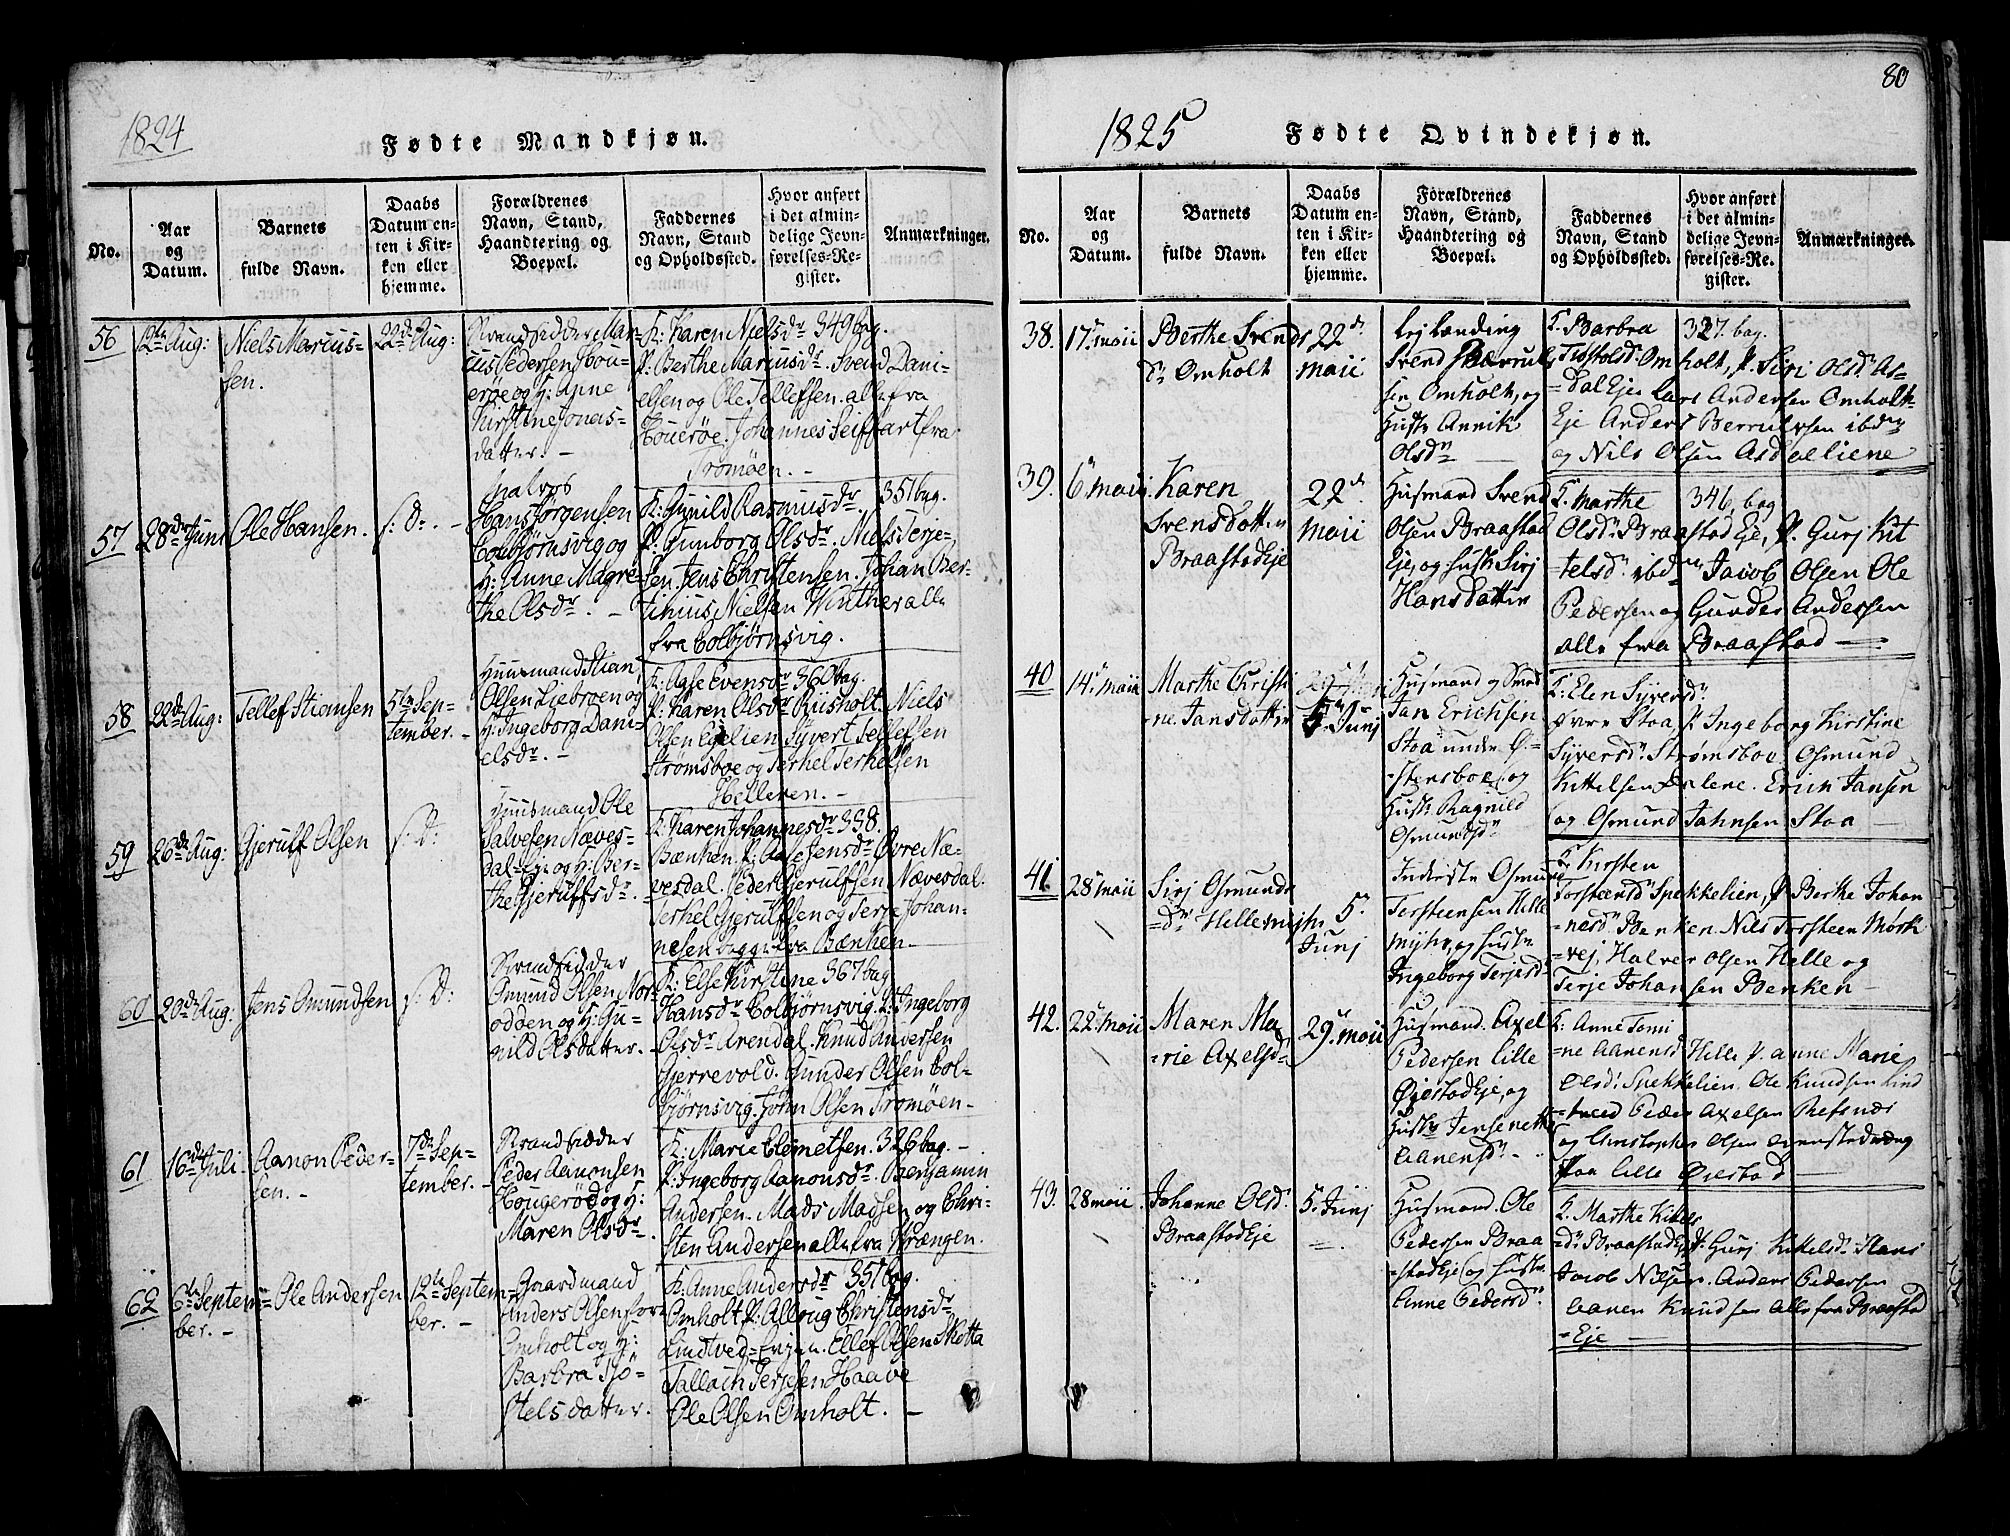 80
1824
Fødte Mandkjøn.
No.
Aar
og
Datum.
Barnets
fulde Navn.
Daabs
Datum en-
ten i Kir-
ken eller
hjemme.
Forældrenes
Navn, Stand,
Haandtering og
Boepæl.
Faddernes
Navn, Stand
og Opholdssted.
Hvor anført
i det almin-
delige Jevn-
førelses-Re-
gister.
Anmærkninger.
56
12te Aug:
Niels Marcus-
sen.
22de Aug:
Strandsidder Mar-
cus Pedersen Hou-
erøe og H: Anne
Kirstine Jonas-
datter. -
K: Karen Nielsdr 349 bag.
P: Berthe Mariusdr. Svend Dani-
elsen og Ole Tellefsen. alle fra
Houerøe. Johannes Seiffart fra
Tromøen. -
57
28de Juni
Ole Hansen.
s: D:. -
Halvos
Hans Jørgensen
Colbjørnsvig og
H: Anne Magre-
the Olsdr. -
K: Gunild Rasmusdr. 351 bag.
P: Gunborg Olsdr. Niels Terje-
sen Jens Christensen. Johan Ber-
tinius Nielsen Winther alle
fra Colbjørnsvig.
58
22de Aug:
Tellef Stiansen
5te Sep-
tember. -
Huusmand Stian
Olsen Liebroen og
H: Ingeborg Dani-
elsdr. -
K: Aase Evensdr 360 bag.
P: Karen Olsdr Riisholt. Niels
Olsen Egelien Syvert Tellefsen
Strømsboe og Terkel Terkelsen
Helleren. -
59
26de Aug:
Gjerulf Olsen
s: D:
Huusmand Ole
Salvesen Næves-
dal-Eje og H: Ber-
the Gjerulfsdr. -
K: Karen Johannesdr 338.
Bænken. P: Aase Jensdr Øvre Næ-
vesdal. Peder Gjerulfsen Nævesdal.
Terkel Gjerulfsen og Terje Johan-
nesen begge fra Bænken -
60
20de Aug.
Jens Omundsen
s: D:
Strandsidder
Omund Olsen Nor-
odden og H: Gu-
nild Olsdatter. -
K: Else Kirstine 367 bag
Hansdr Colbjørnsvig. P: Ingeborg
Olsdr Arendal. Knud Andersen
Kjerrevold. Gunder Olsen Col-
bjørnsvig. John Olsen Tromøen -
61
16de Juli.
Aanon Peder-
sen. -
7de Sep-
tember. -
Strandsidder
Peder Aanonsen
Hougerød og H:
Maren Olsdr.
K: Marie Clemetsen. 326 bag. -
P: Ingeborg Aanonsdr. Benjamin
Andersen. Mads Madsen og Chri-
sten Andersen alle fra Krængen.
62
6te Septem-
ber. -
Ole Andersen
12te Septem-
ber. -
Gaardmand
Anders Olsen
Omholt og H:
Barbra Tjø-
stelsdatter.
K: Anne Andersdr 351 bag.
Omholt P: Alloug Christensdr
Lindtved-Eejen. Ellef Olsen Skotta
Tallach Terjesen Haave
Ole Olsen Omholt. -
1825
Fødte Qvindekjøn.
No.
Aar
og
Datum.
Barnets
fulde Navn.
Daabs
Datum en-
ten i Kir-
ken eller
hjemme.
Forældrenes
Navn, Stand,
Haandtering og
Boepæl.
Faddernes
Navn, Stand
og Opholdssted.
Hvor anført
i det almin-
delige Jevn-
førelses-Re-
gister.
Anmærkninger.
38.
17de maii
Berthe Svends
dr Omholt
22de
maii
Lejlænding
Svend
sen Omholt, og
Hustr Annik
Olsdr
K. Barbra 327 bag.
Tjøstolsdr Omholt, P. Siri Olsdr As-
=dal Eje Lars Andersen Omholt-
Eje Anders Berrulfsen ibdm
og Nils Olsen Asdalliene
39.
6te maii
Karen
Svensdatter
BraastadEje
22de
maii
Husmand Svend
Olsen Braastad
Eje, og Hustr Sirj
Hansdatter
K. Marthe 346, bag
Olsdr Braastad Eje, P. Gurj Kit
=telsdr ibdm Jacob Olsen Ole
Pedersen og Gunder Andersen
alle fra Braastad
40
14de maii
Marthe Christi
=ne Jansdatter
5te Junj
Husmand og Smed
Jan Erichsen
Stoa under Ø-
=stensboe, og
Hustr Ragnild
Osmundsdr
K: Elen Syversdr
øvre Stoa, P Ingeborg Kirstine
Syversdr Strømsboe Osmund
Kittelsen Dalene. Erich Jansen
og Osmund Jahnsen Stoa
41.
28de maii
Sirj Osmunds
=dr Hellemyhr
5.
Junj
Inderste Osmund
Tersteensen Helle
myhr, og hustr
Ingeborg Terjesdr
K. Kirsten
Torsteensdr Spekkelien, P. Berthe Johan
=nesdr Benken Nils Torsteen Mørk
=vej, Halver Olsen Helle og
Terje Johansen Benken
42.
22de maii
Maren Ma
=rie Axelsdr
29de maii
Husmand. Axel
Pedersen Lille
ØjestadEje, og
Hustr Jensenette
Aanensdr -
K: Anne Tomi
=ne Aanensd Helle P. Anne Marie
Olsdr Spekkelien. Ole Knudsen Lind
=tved Peder Axelsen Refsnæs
og Christopher Olsen
paa Lille Øiestad
43.
28 maii
Johanne Olsdr
BraastadEje
5te Junj
Husmand. Ole
Pedersen Braa
=stadEje, og Hustr
Anne Pedersdr
K. Marthe Kittels
=dr BraastadEje P: Gurj Kittelsdr Hans
Jacob Nilsen. Anders Pedersen
Aanen Knudsen alle fra Braastad
=Eje